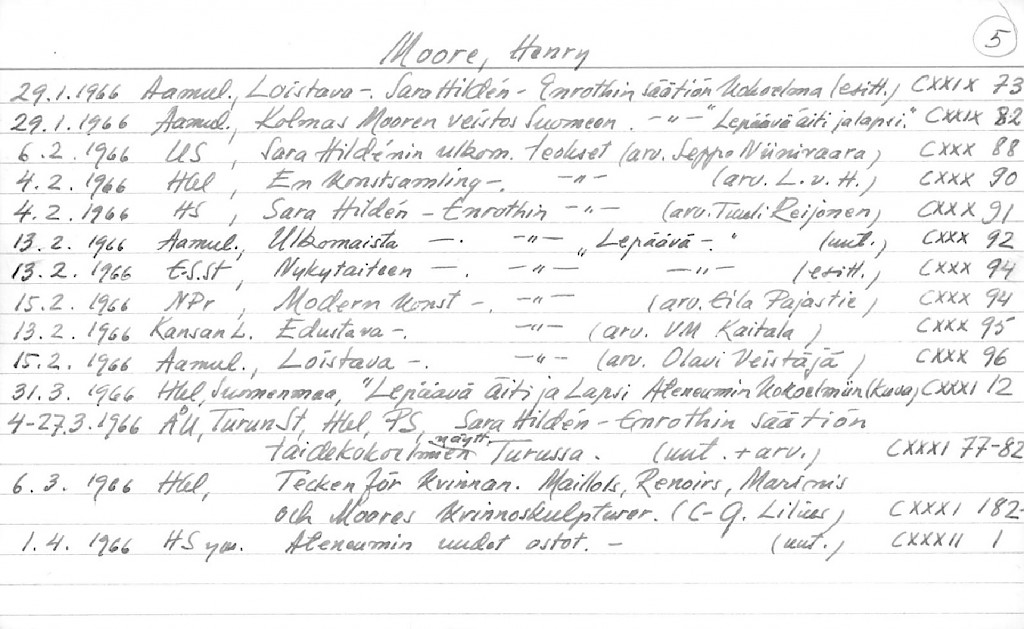 5
Moore, Henry
29.1.1966 Aamul., Loistava -. Sara Hildén - Enrothin säätiön kokoelma (esitt.) CXXIX 73
29.1.1966 Aamul., Kolmas Mooren veistos Suomeen. -"- "Lepäävä äiti ja lapsi." CXXIX 82
6.2.1966 US, Sara Hildénin ulkom. teokset (arv. Seppo Niinivaara) CXXX 88
4.2.1966 Hbl, En konstsamling -. -"- (arv. L.v.H.) CXXX 90
4.2.1966 HS, Sara Hildén - Enrothin -"- (arv. Tuuli Reijonen) CXXX 91
13.2.1966 Aamul., Ulkomaista -. -"- "Lepäävä -." (uut.) CXXX 92
13.2.1966 E.S.St, Nykytaiteen -. -"- -"- (esitt.) CXXX 94
15.2.1966 NPr, Modern konst -. -"- (arv. Eila Pajastie) CXXX 94
13.2.1966 Kansan L. Edustava -. -"- (arv. VM Kaitala) CXXX 95
15.2.1966 Aamul., Loistava -. -"- (arv. Olavi Veistäjä) CXXX 96
31.3.1966 Hbl, Suomenmaa, "Lepäävä äiti ja Lapsi Ateneumin kokoelmiin (kuva) CXXXI 12
4-27.3.1966 ÅU, TurunSt, Hbl, PS, Sara Hildén - Enrothin säätiön
taidekokoelmien näytt. Turussa. (uut. + arv.) CXXXI 77-82
6.3.1966 Hbl, Tecken för kvinnan. Maillols, Renoirs, Marinis
och Moores kvinnoskulpturer. (C-G. Lilius) CXXXI 182-
1.4.1966 HS ym. Ateneumin uudet ostot. - (uut.) CXXXII 1